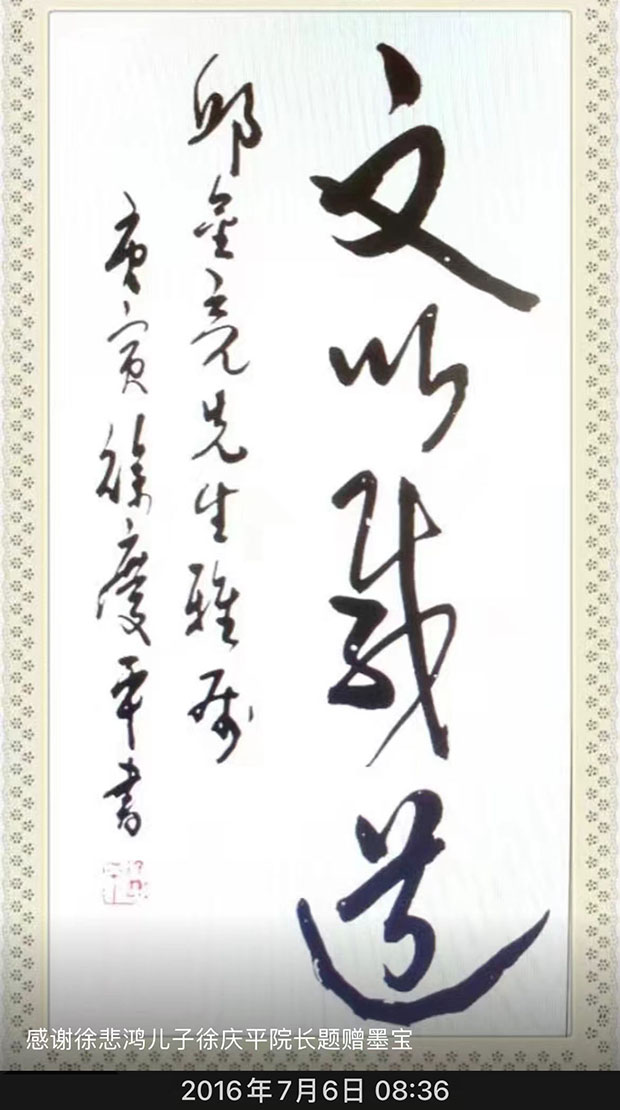 文以载道
邱金亮先生雅属
庚寅徐庆平书
感谢徐悲鸿儿子徐庆平院长题赠墨宝
2016年7月6日 08:36